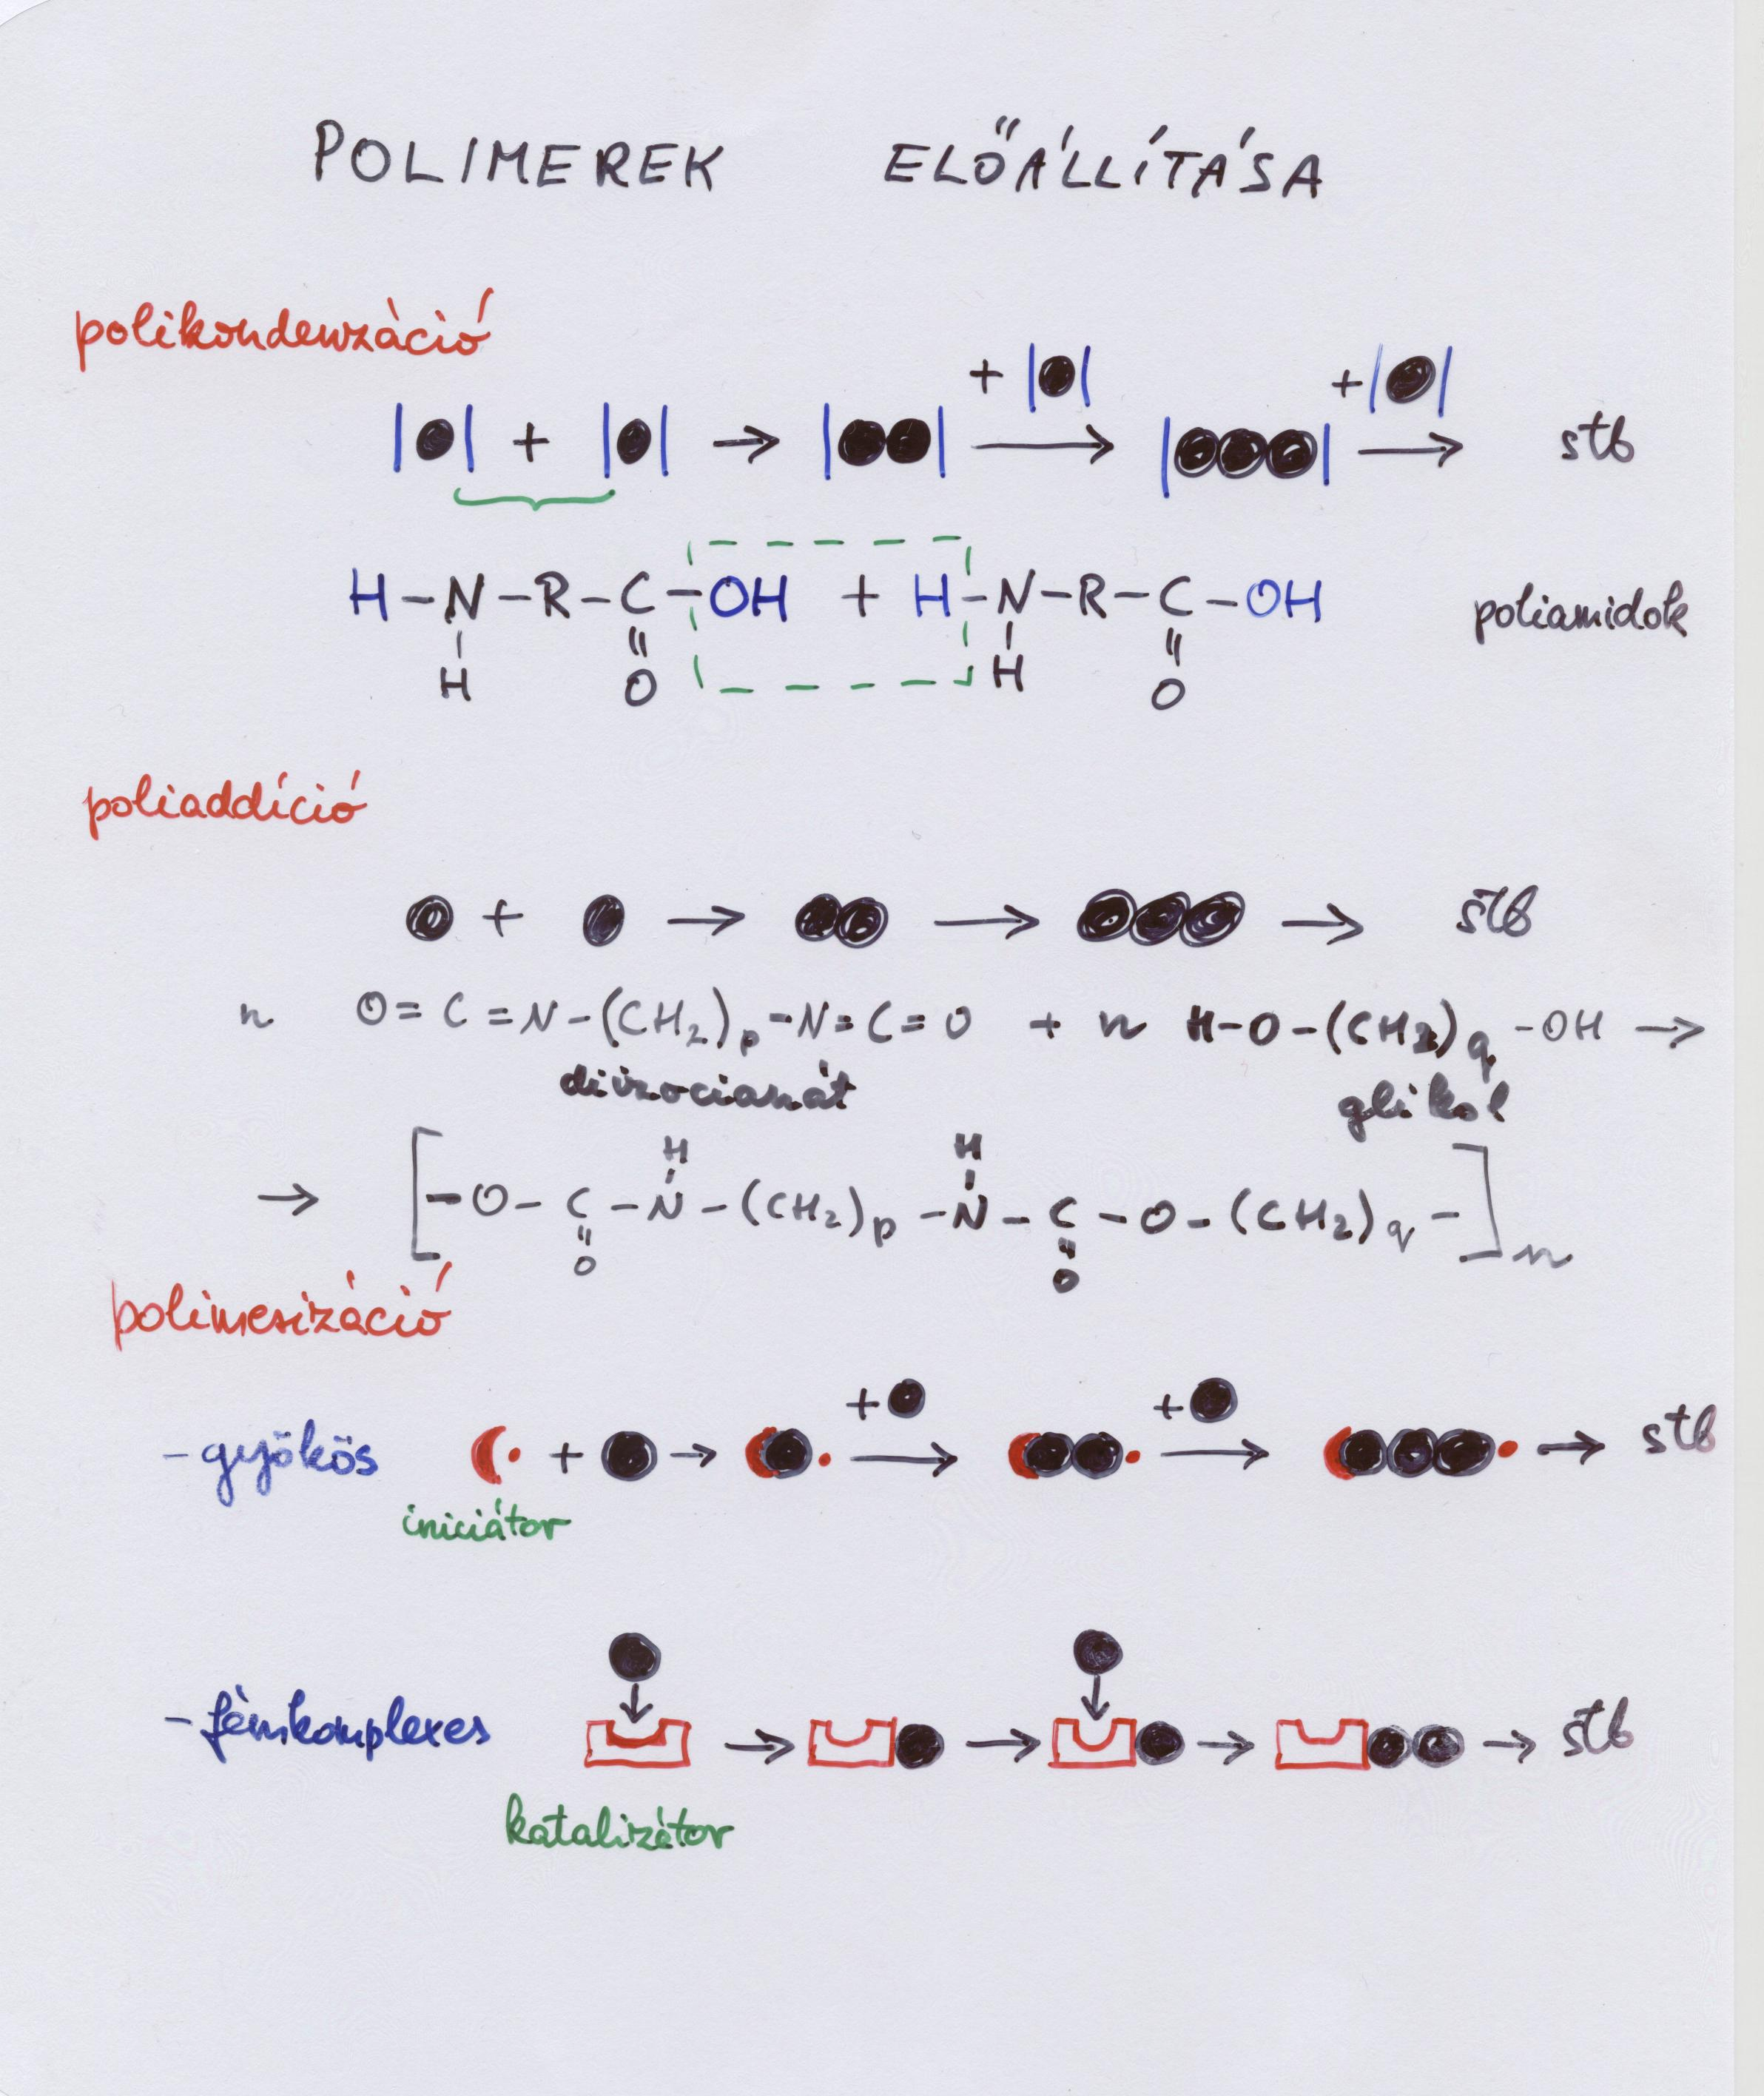 POLIMEREK ELŐÁLLÍTÁSA
polikondenzáció
+ +
+ → → → stb
H-N-R-C-OH + H-N-R-C-OH poliamidok
H O H O
poliaddíció
+ → → → stb
n O=C=N-(CH₂)p-N=C=O + n H-O-(CH₂)q-OH →
diizocianát glikol
H H
→ [-O-C-N-(CH₂)p-N-C-O-(CH₂)q-]n
O O
polimerizáció
+ +
-gyökös + → → → → stb
iniciátor
-fémkomplexes → → → → stb
katalizátor